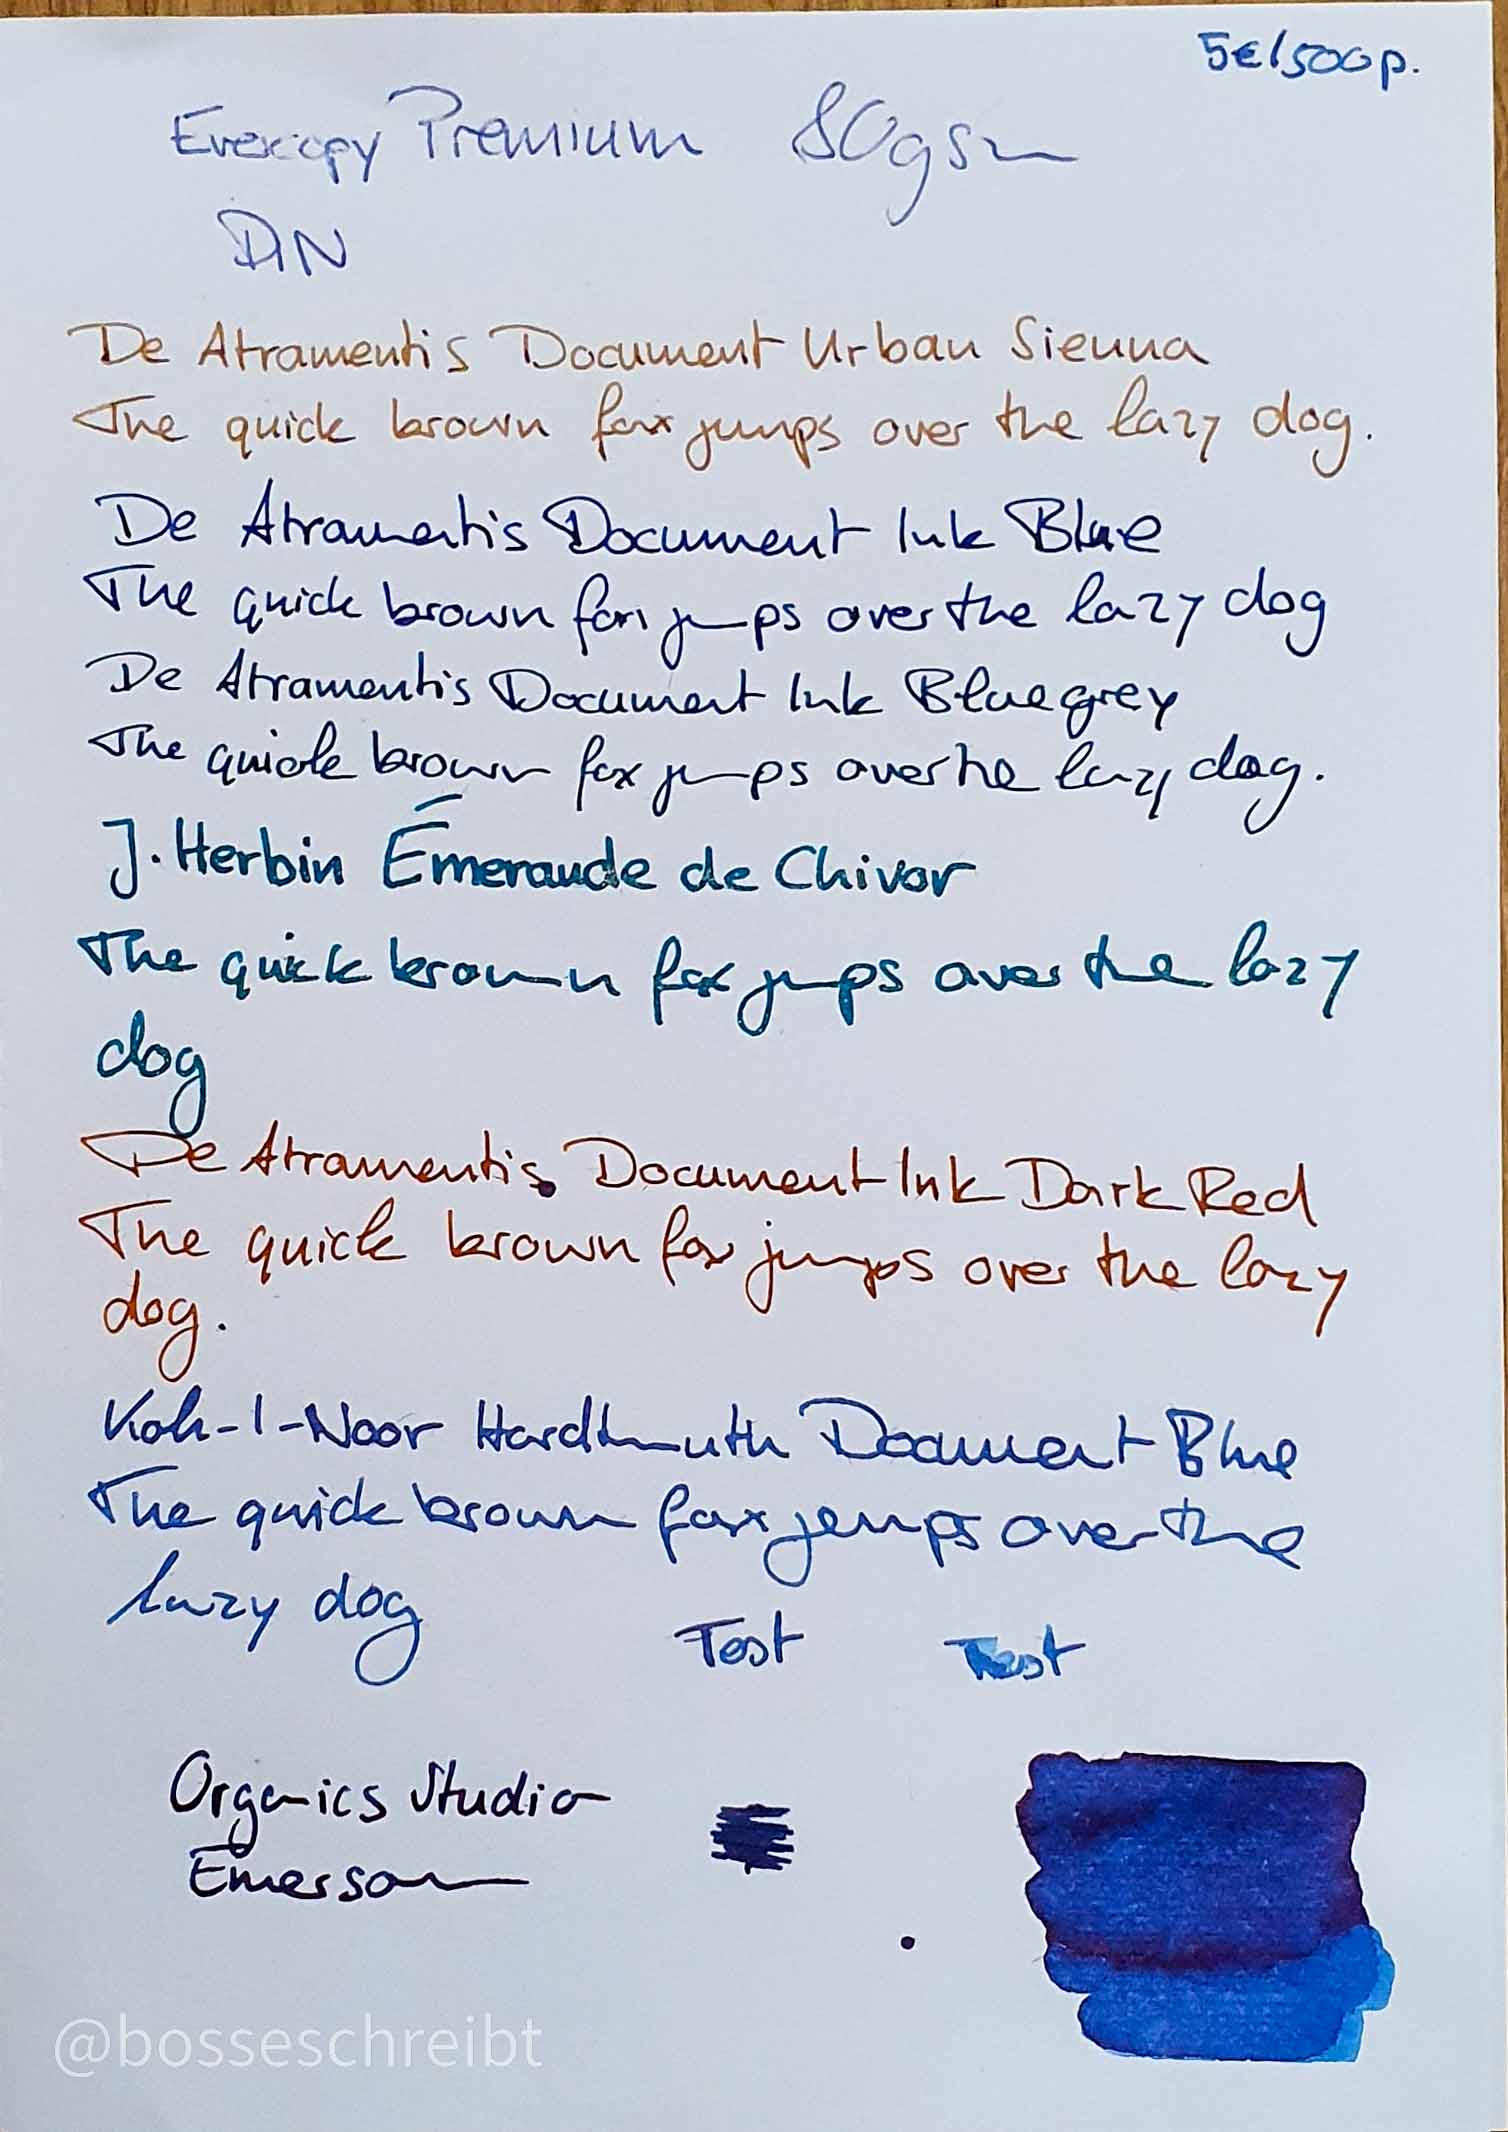 5€/500p.
Evercopy Premium 80gsm
DIN
De Atramentis Document Urban Sienna
The quick brown fox jumps over the lazy dog.
De Atramentis Document Ink Blue
The quick brown fox jumps over the lazy dog
De Atramentis Document Ink Bluegrey
The quick brown fox jumps over the lazy dog.
J. Herbin Émeraude de Chivor
The quick brown fox jumps over the lazy
dog
De Atramentis Document Ink Dark Red
The quick brown fox jumps over the lazy
dog.
Koh-I-Noor Hardtmuth Document Blue
The quick brown fox jumps over the
lazy dog
Test Test
Organics Studio
Emerson
@bosseschreibt